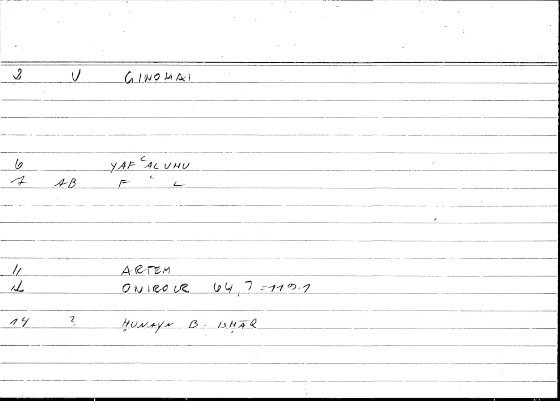 3 V GINOMAI
6 YAFʿALUHU
7 AB F ʿ L
11 ARTEM
12 ONIROCR 64, 7 = 119.1
14 ? ḤUNAYN B. ISḤĀQ